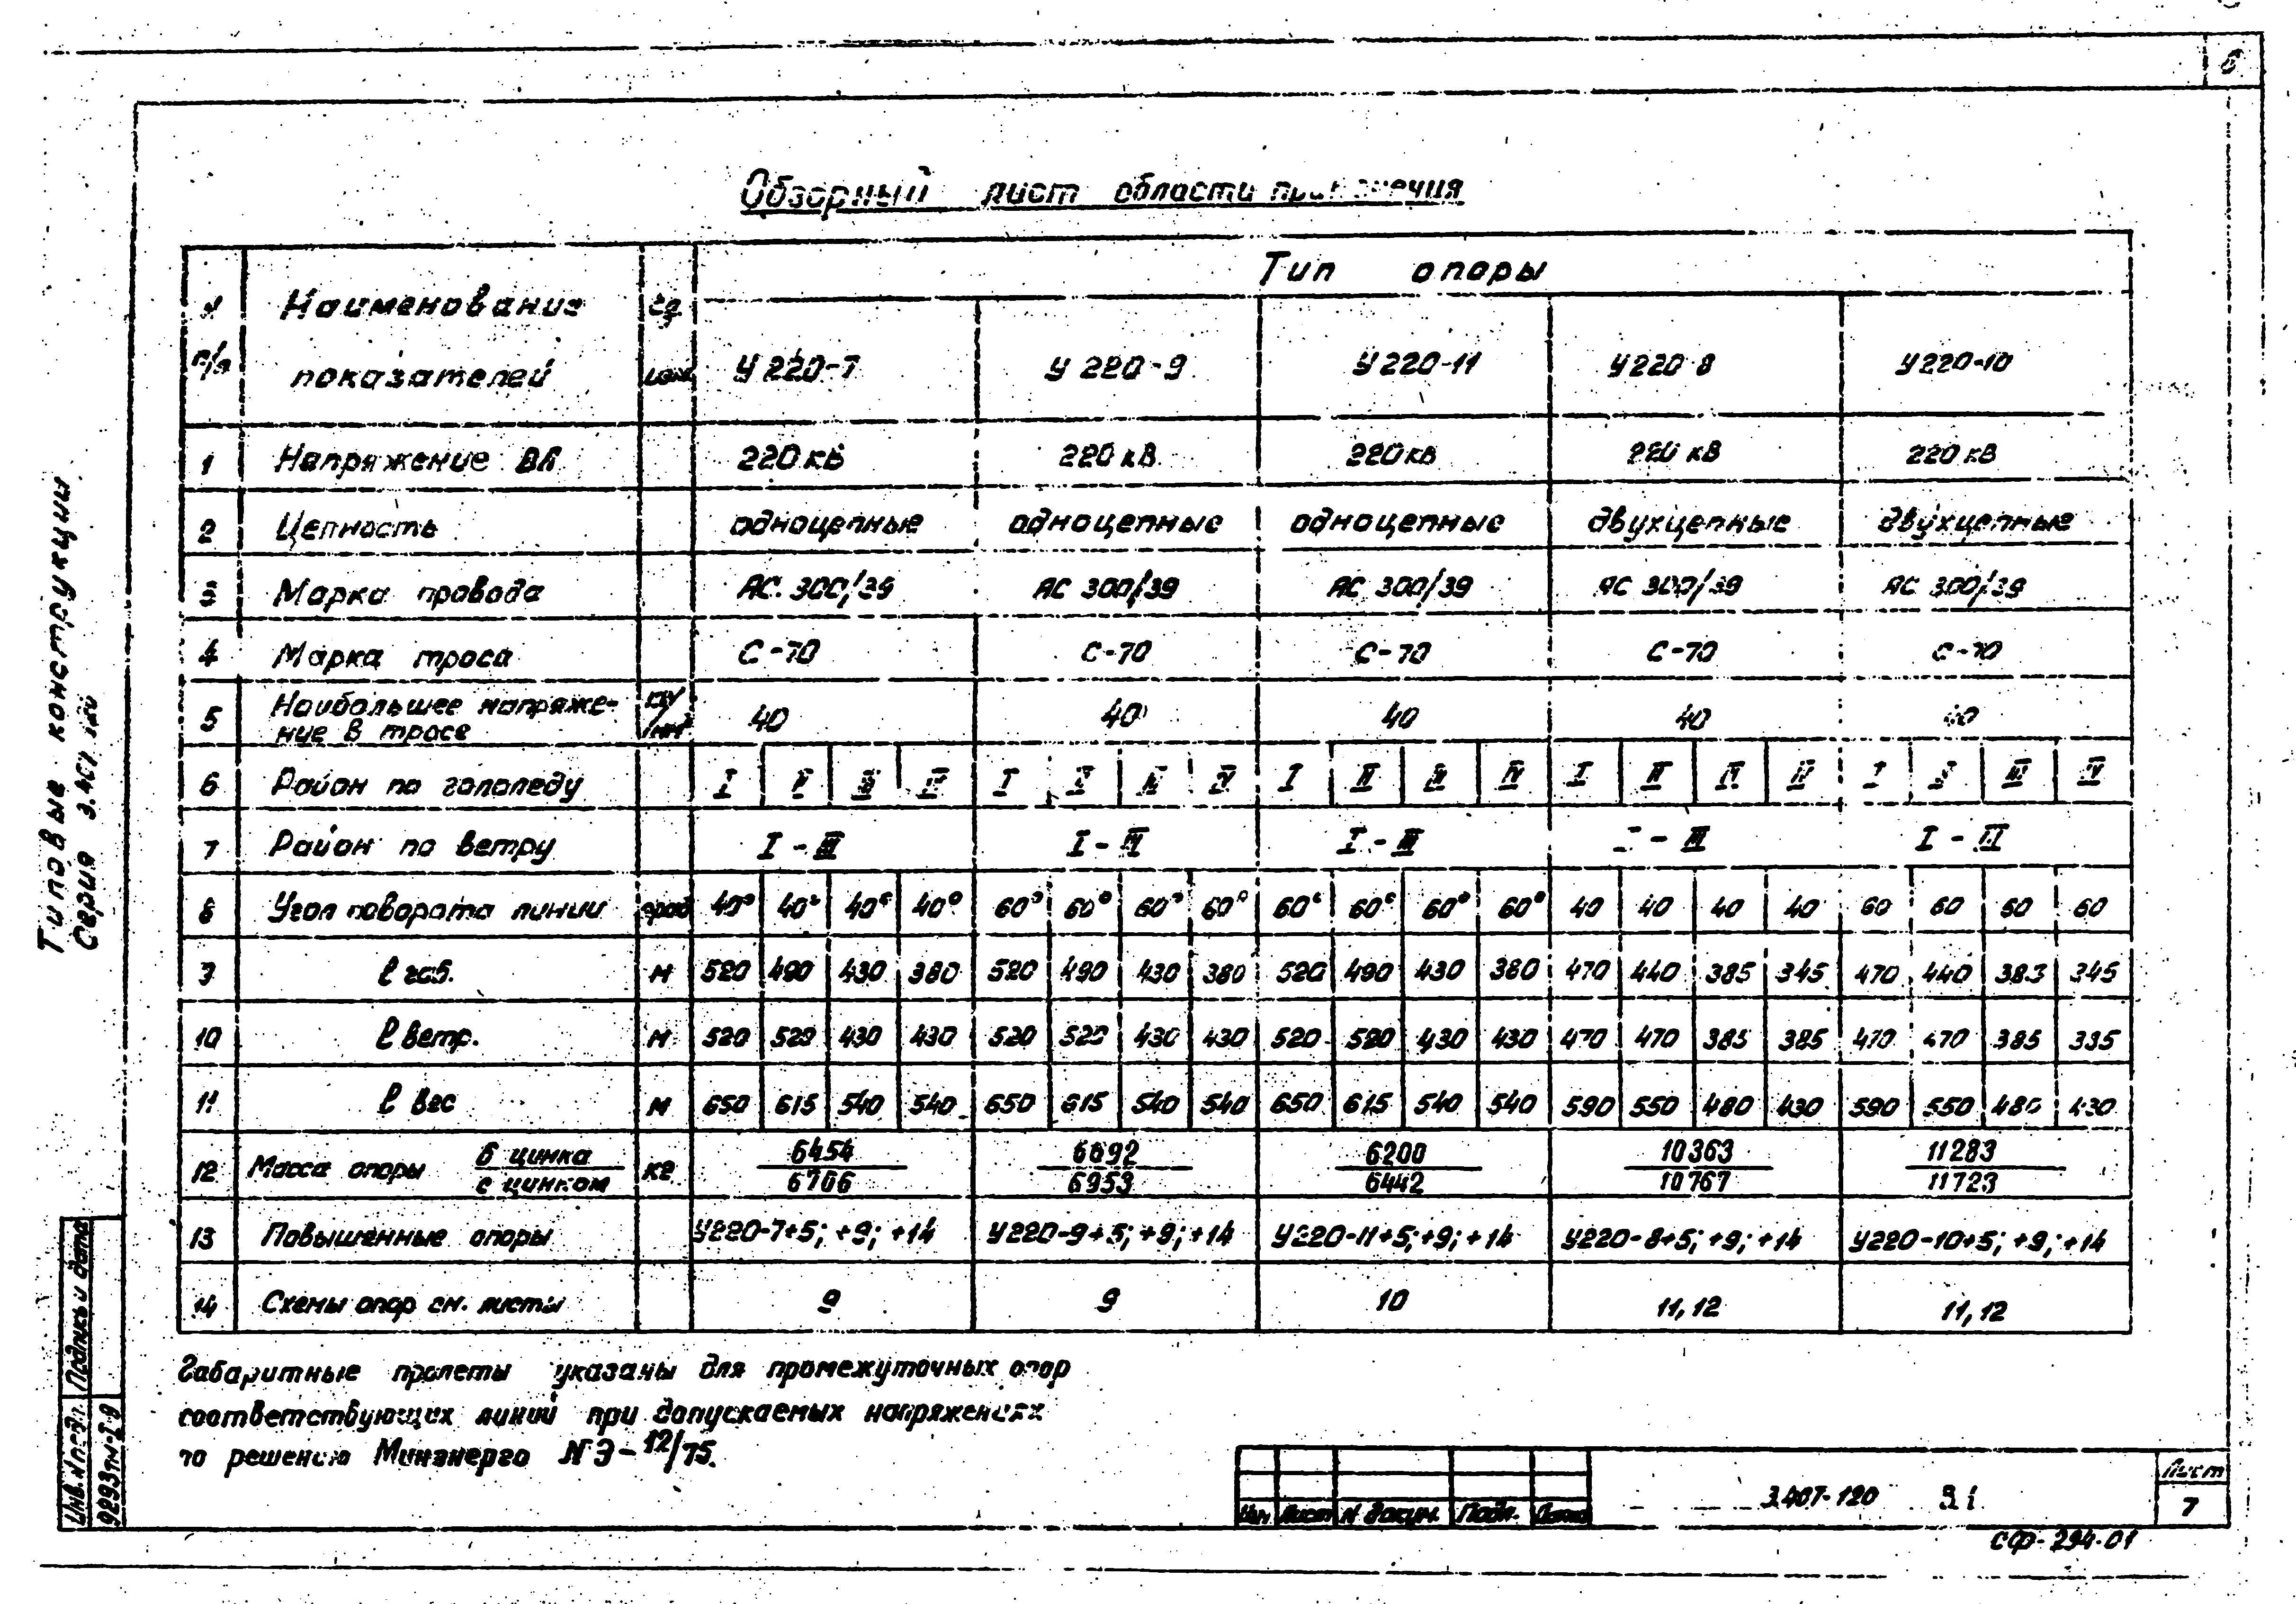 6
Обзорный лист области применения
N п/п Наименование показателей Ед. изм. Тип опоры
У220-7 У220-9 У220-11 У220-8 У220-10
1 Напряжение ВЛ 220 кВ 220 кВ 220 кВ 220 кВ 220 кВ
2 Цепность одноцепные одноцепные одноцепные двухцепные двухцепные
3 Марка провода АС 300/39 АС 300/39 АС 300/39 АС 300/39 АС 300/39
4 Марка троса С-70 С-70 С-70 С-70 С-70
5 Наибольшее напряже-
ние в тросе 40 40 40 40 40
6 Район по гололеду I II III IV I II III IV I II III IV I II III IV I II III IV
7 Район по ветру I - III I - III I - III I - III I - III
8 Угол поворота линии град 40° 40° 40° 40° 60° 60° 60° 60° 60° 60° 60° 60° 40 40 40 40 60 60 60 60
9 ℓ габ. м 520 490 430 380 520 490 430 380 520 490 430 380 470 440 385 345 470 440 385 345
10 ℓ ветр. м 520 520 430 430 520 520 430 430 520 520 430 430 470 470 385 385 470 470 385 385
11 ℓ вес м 650 615 540 540 650 615 540 540 650 615 540 540 590 550 480 430 590 550 480 430
12 Масса опоры б цинка / с цинком кг 6454/6706 6692/6953 6200/6442 10363/10767 11283/11723
13 Повышенные опоры У220-7+5; +9; +14 У220-9+5; +9; +14 У220-11+5; +9; +14 У220-8+5; +9; +14 У220-10+5; +9; +14
14 Схемы опор см. листы 9 9 10 11, 12 11, 12
Габаритные пролеты указаны для промежуточных опор
соответствующих линий при допускаемых напряжениях
по решению Минэнерго N Э-12/75.
Типовые конструкции
Серия
Подпись и дата
Инв. N подл.
9293тм-I-9
Изм Лист N докум. Подп. Дата
3.407-120
Лист
7
СФ-294-01